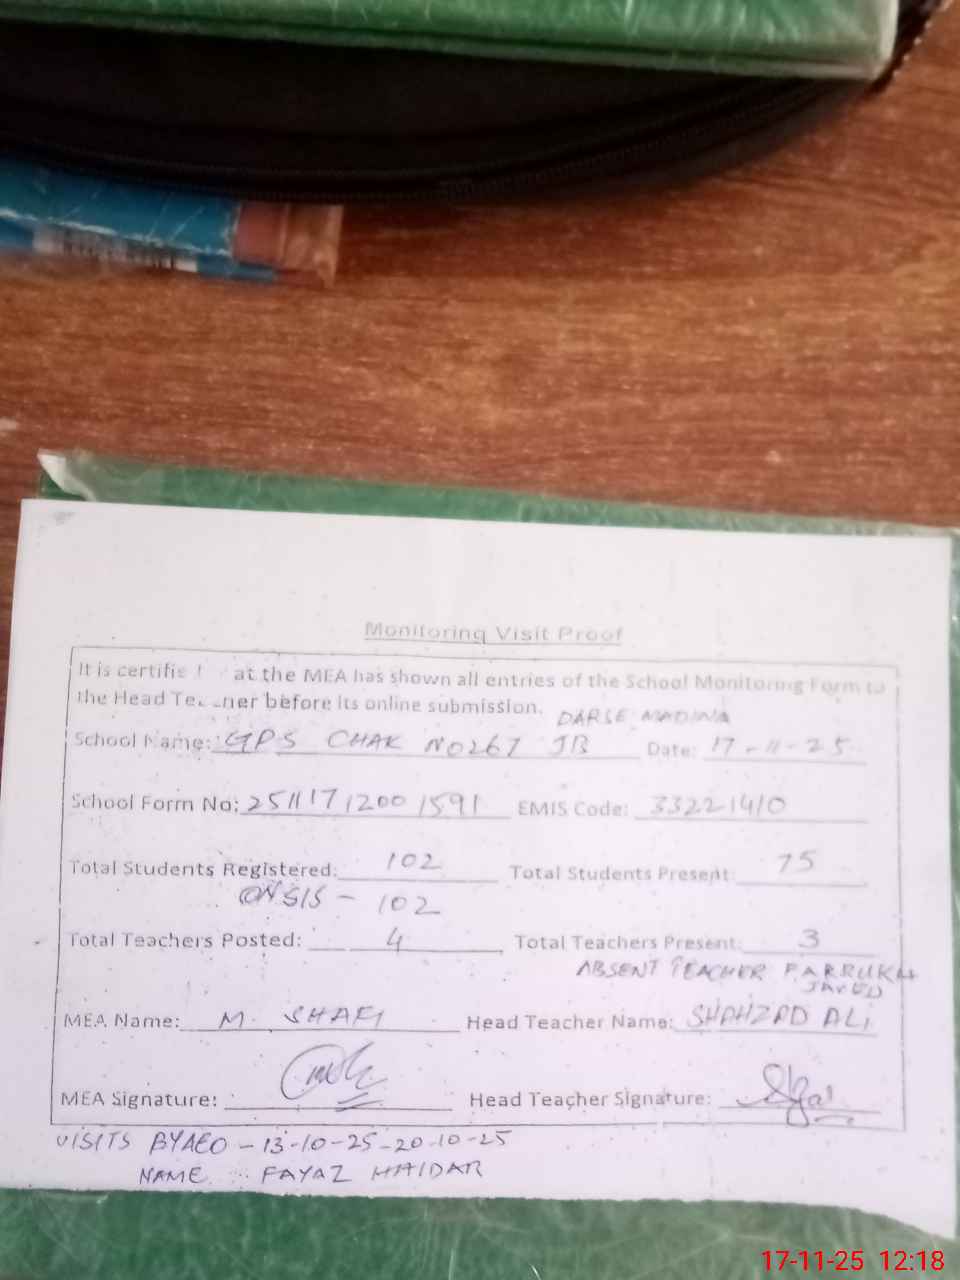 Monitoring Visit Proof
It is certifie at the MEA has shown all entries of the School Monitoring Form to
the Head Te ner before its online submission. DARSE MADINA
School Name: GPS CHAK NO 267 JB Date: 17-11-25
School Form No: 2511171200 1591 EMIS Code: 33221410
Total Students Registered: 102 Total Students Present: 75
ON SIS - 102
Total Teachers Posted: 4 Total Teachers Present: 3
ABSENT TEACHER FARRUKH
JAVED
MEA Name: M. SHAFI Head Teacher Name: SHAHZAD ALI
MEA Signature: Head Teacher Signature:
VISITS BY AEO - 13-10-25-20-10-25
NAME FAYAZ HAIDAR
17-11-25 12:18